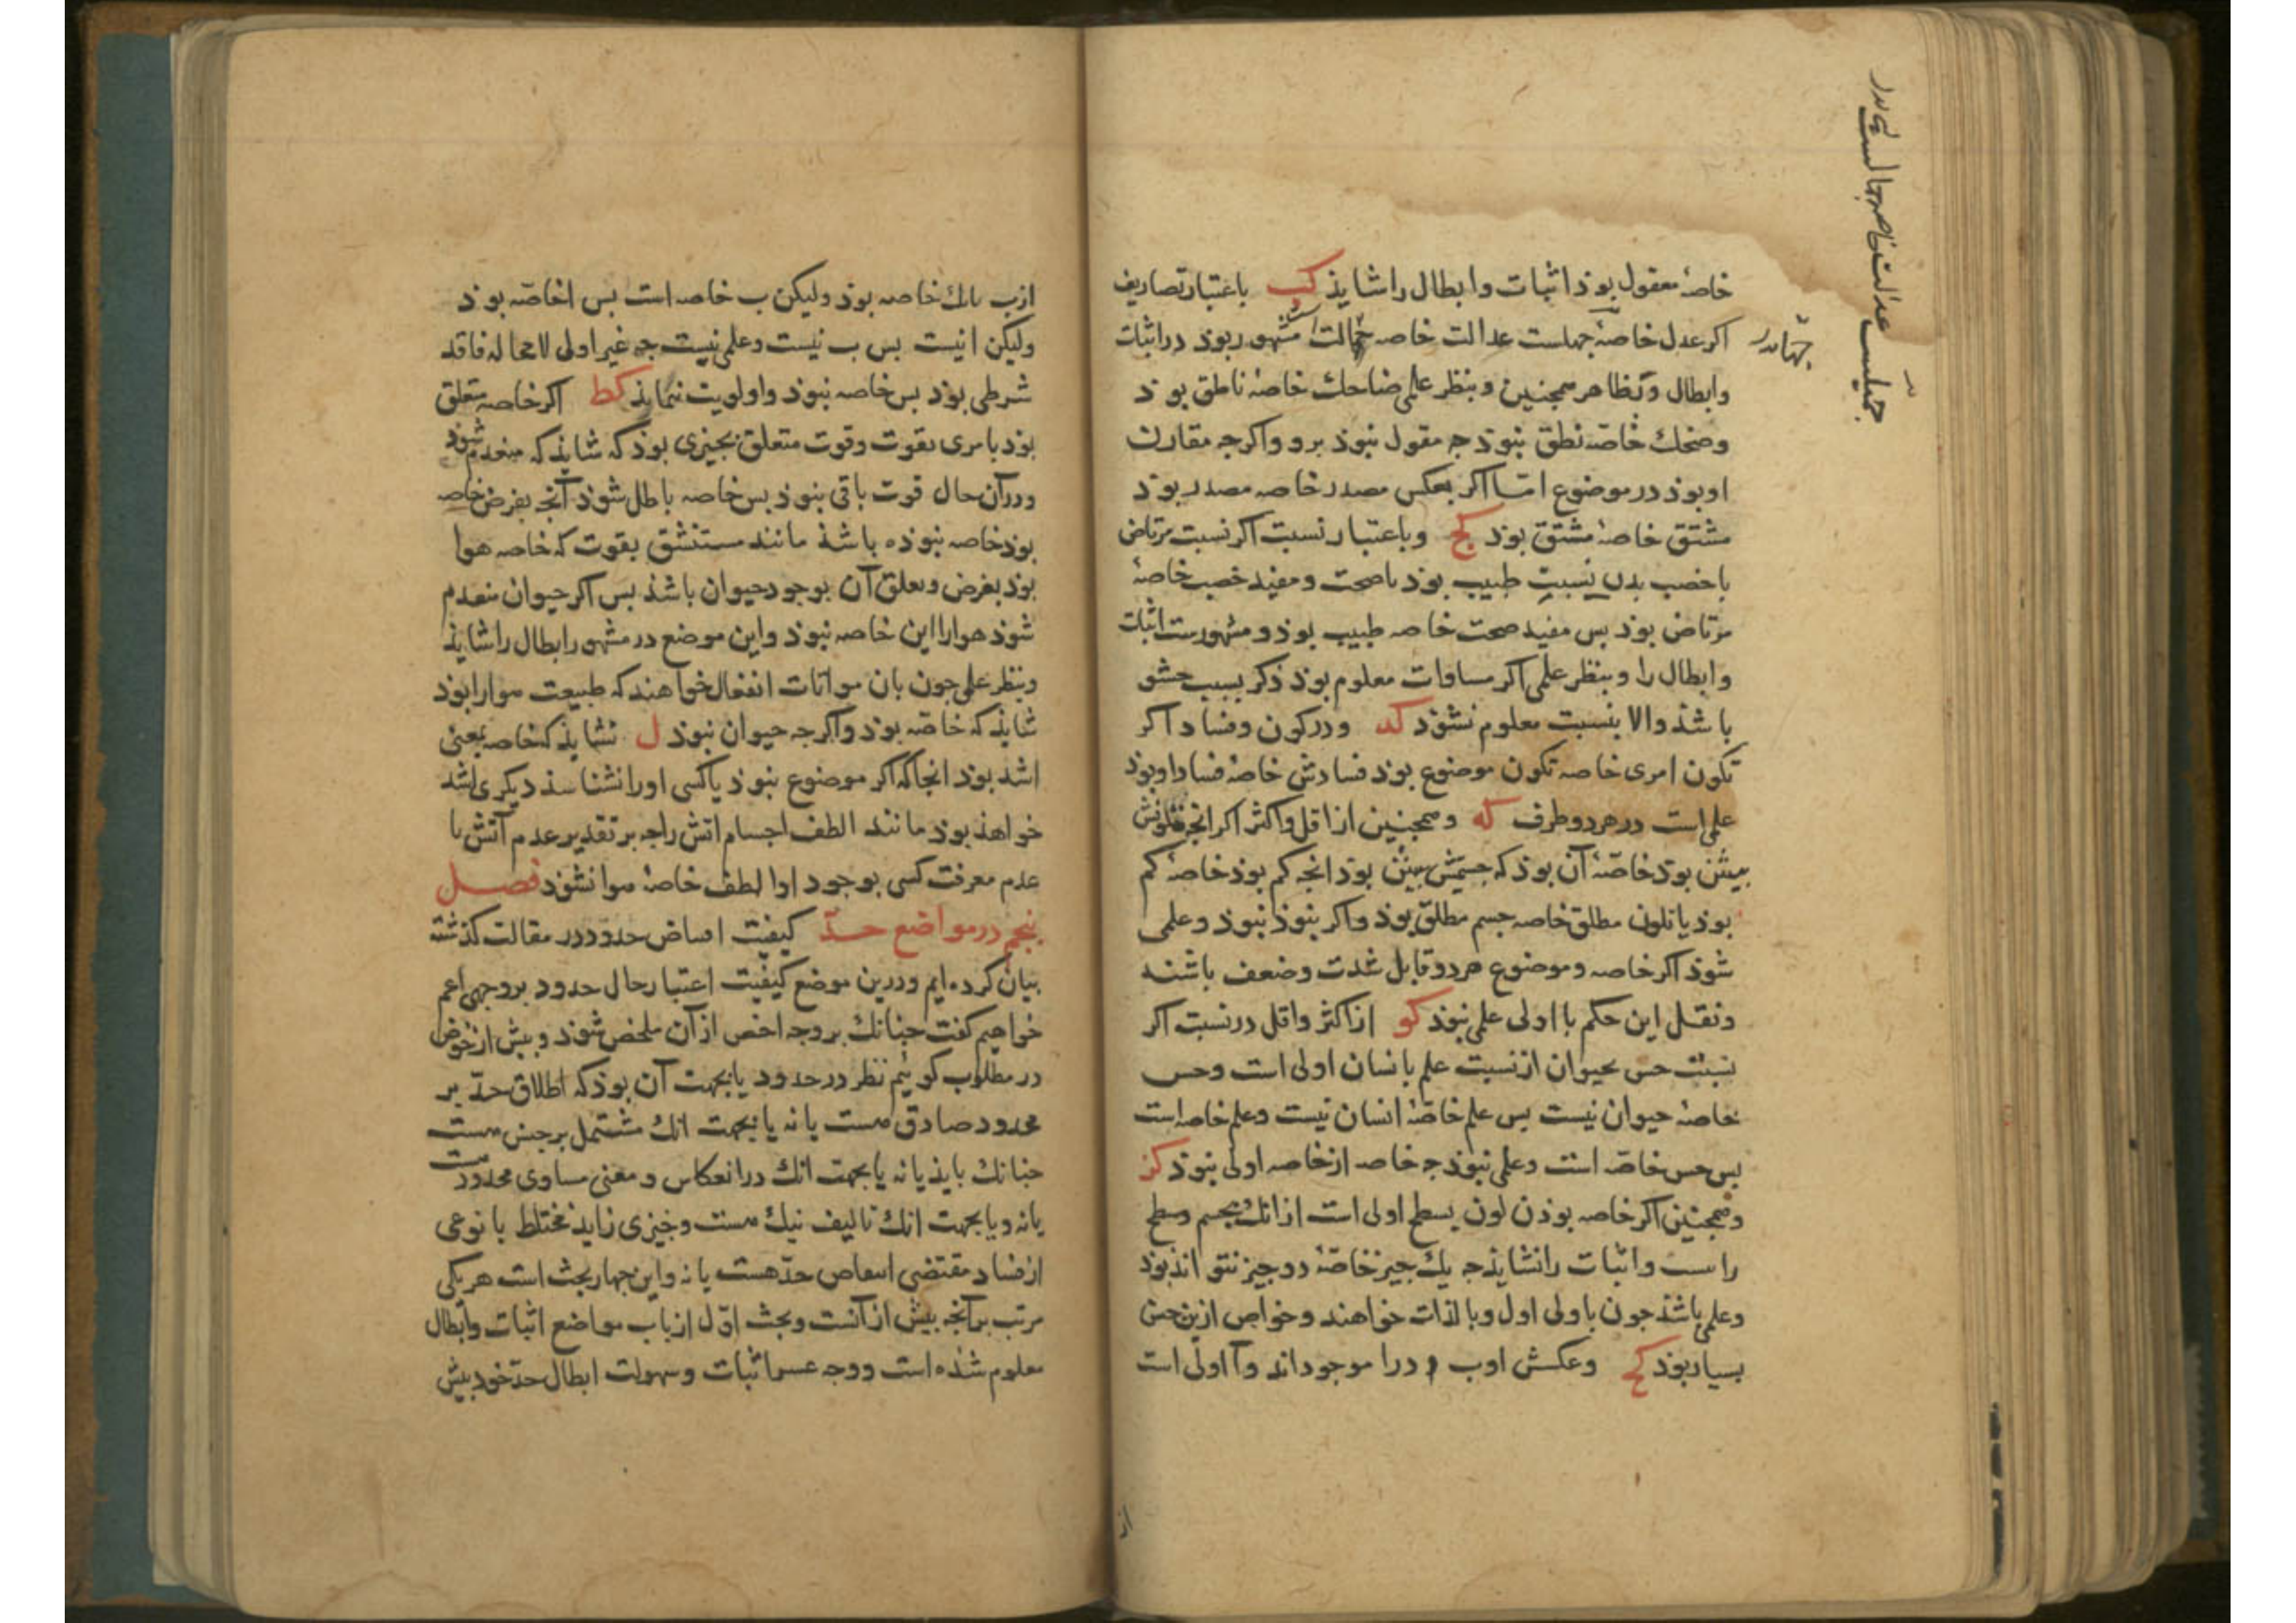 خاصهٔ معقول بوذ اثبات و ابطال را شایذ کب باعتبار تصاریف
اکر عدل خاصهٔ جمیلست عدالت خاصه جمالت مشهور بوذ در اثبات
و ابطال و نظایر همجنین و بنظر علمی ضاحک خاصهٔ ناطق بوذ
و ضحک خاصّه نطق نبوذ جه مقول نبوذ برو و اکرجه مقارن
او بوذ در موضوع امّا اکر بعکس مصدر خاصه مصدر بوذ
مشتق خاصهٔ مشتق بوذ کج و باعتبار نسبت اکر نسبت مرتاض
با خصب بدن نسبت طبیب بوذ با صحت و مفید خصب خاصهٔ
مرتاض بوذ بس مفید صحت خاصه طبیب بوذ و مشهورست اثبات
و ابطال را و بنظر علمی اکر مساوات معلوم بوذ ذکر نسبت حشو
باشذ و الا بنسبت معلوم نشوذ کد و در کون و فساد اکر
تکون امری خاصه تکون موضوع بوذ فسادش خاصهٔ فساد او بوذ
علمی است در هر دو طرف که و همجنین از اقل و اکثر اکر انجه تلونش
بیش بوذ خاصّهٔ آن بوذ که جسمیتش بیش بوذ انجه کم بوذ خاصهٔ کم
بوذ یا تلون مطلق خاصه جسم مطلق بوذ و اکر نبوذ نبوذ و علمی
شوذ اکر خاصه و موضوع هر دو قابل شدت و ضعف باشند
و نقل این حکم با اولی علمی نبوذ کو از اکثر و اقل در نسبت اکر
نسبت حس بحیوان از نسبت علم بانسان اولی است و حس
خاصهٔ حیوان نیست بس علم خاصّهٔ انسان نیست و علم خاصه است
بس حس خاصّه است و علمی نبوذ جه خاصه از خاصه اولی نبوذ کز
و همجنین اکر خاصه بوذن لون بسطح اولی است از انک بجسم و سطح
راست و اثبات را نشایذ جه یک جیز خاصّهٔ دو جیز نتواند بوذ
و علمی باشذ جون باولی اول و بالذات خواهند و خواص ازین جنس
بسیار بوذ کح و عکسش ا و ب در ا موجوداند و آ اولی است
از
جهاندر
از ب بانک خاصه بوذ ولیکن ب خاصه است بس ا خاصّه بوذ
ولیکن ا نیست بس ب نیست و علمی نیست جه غیر اولی لا محاله فاقد
شرطی بوذ بس خاصه نبوذ و اولویت نماید کط اکر خاصه متعلق
بوذ بامری بقوت و قوت متعلق بجیزی بوذ که شایذ که منعدم شوذ
و در آن حال قوت باقی نبوذ بس خاصه باطل شوذ آنج بفرض خاصه
بوذ خاصه نبوذه باشذ مانند مستنشق بقوت که خاصه هوا
بوذ بفرض و تعلق آن بوجود حیوان باشذ بس اکر حیوان منعدم
شوذ هوا را این خاصه نبوذ و این موضع در مشهور ابطال را شایذ
و بنظر علمی جون بان مواتات انفعال خواهند که طبیعت هوا را بوذ
شایذ که خاصّه بوذ و اکرجه حیوان نبوذ ل نشایذ که خاصه بمعنی
اشد بوذ انجا که اکر موضوع نبوذ یا کسی او را نشناسذ دیکری اشد
خواهذ بوذ مانند الطف اجسام اتش را جه بر تقدیر عدم آتش یا
عدم معرفت کسی بوجود او الطف خاصهٔ هوا نشوذ فصل
بنجم در مواضع حدّ کیفیت اقتناص حدود در مقالت کذشته
بیان کرده ایم و درین موضع کیفیت اعتبار حال حدود بر وجهی اعم
خواهیم کفت جنانک بر وجه اخص از آن ملخص شوذ و بیش از خوض
در مطلوب کوییم نظر در حدود یا بجهت آن بوذ که اطلاق حدّ بر
محدود صادق هست یا نه یا بجهت انک مشتمل بر جنس هست
جنانک بایذ یا نه یا بجهت انک در انعکاس و معنی مساوی محدود هست
یا نه و یا بجهت انک تالیف نیک هست و جیزی زاید مختلط یا نوعی
از فساد مقتضی انتقاض حدّ هست یا نه و این جهار بحث است هر یکی
مرتب بر آنجه بیش از آنست و بحث اوّل از باب مواضع اثبات و ابطال
معلوم شذه است و وجه عسر اثبات و سهولت ابطال حدّ خود بیش